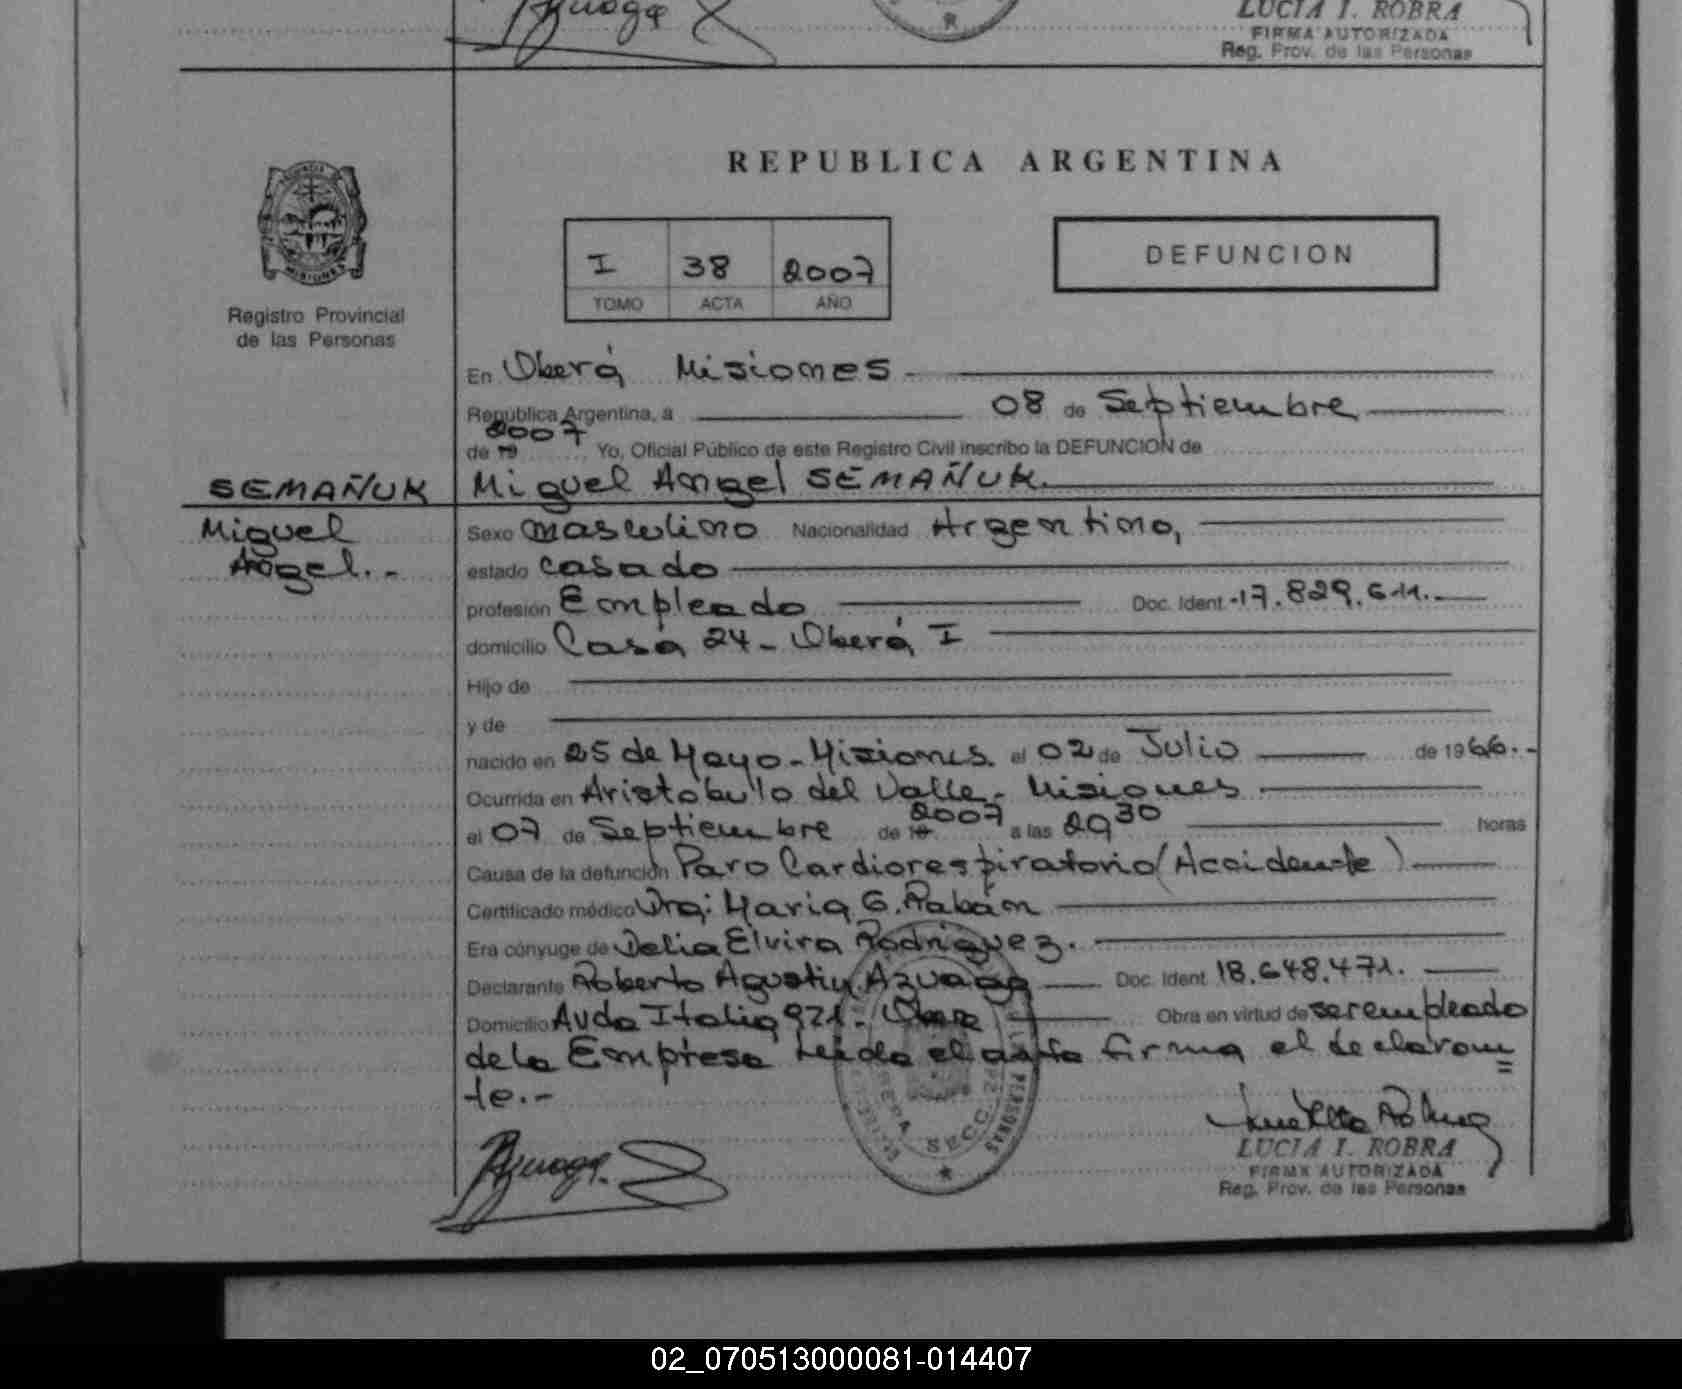 Azuaga
LUCIA I. ROBRA
FIRMA AUTORIZADA
Reg. Prov. de las Personas
REPUBLICA ARGENTINA
I 38 2007
TOMO ACTA AÑO
DEFUNCION
MISIONES
Registro Provincial
de las Personas
En Oberá Misiones
República Argentina, a 08 de Septiembre
2007
de 19 Yo, Oficial Público de este Registro Civil inscribo la DEFUNCION de
SEMAÑUK Miguel Angel SEMAÑUK.
Miguel
Angel.-
Sexo masculino Nacionalidad Argentino,
estado casado
profesión Empleado Doc. Ident.-17.829.611.-
domicilio Casa 24- Oberá I
Hijo de
y de
nacido en 25 de Mayo-Misiones. el 02 de Julio de 1966.-
Ocurrida en Aristobulo del Valle- Misiones
el 07 de Septiembre de 19 2007 a las 20 30 horas
Causa de la defunción Paro Cardiorespiratorio (Accidente)
Certificado médico Dra: Maria G. Rabán
Era cónyuge de Delia Elvira Rodriguez.
Declarante Roberto Agustin Azuaga Doc. Ident. 18.648.471.
Domicilio Avda Italia 921- Obera Obra en virtud de ser empleado
de la Empresa Leida el acta firma el declaran=
te.-
SECC.
PERSONAS
Azuaga.
LUCIA I. ROBRA
FIRMA AUTORIZADA
Reg. Prov. de las Personas
02_070513000081-014407